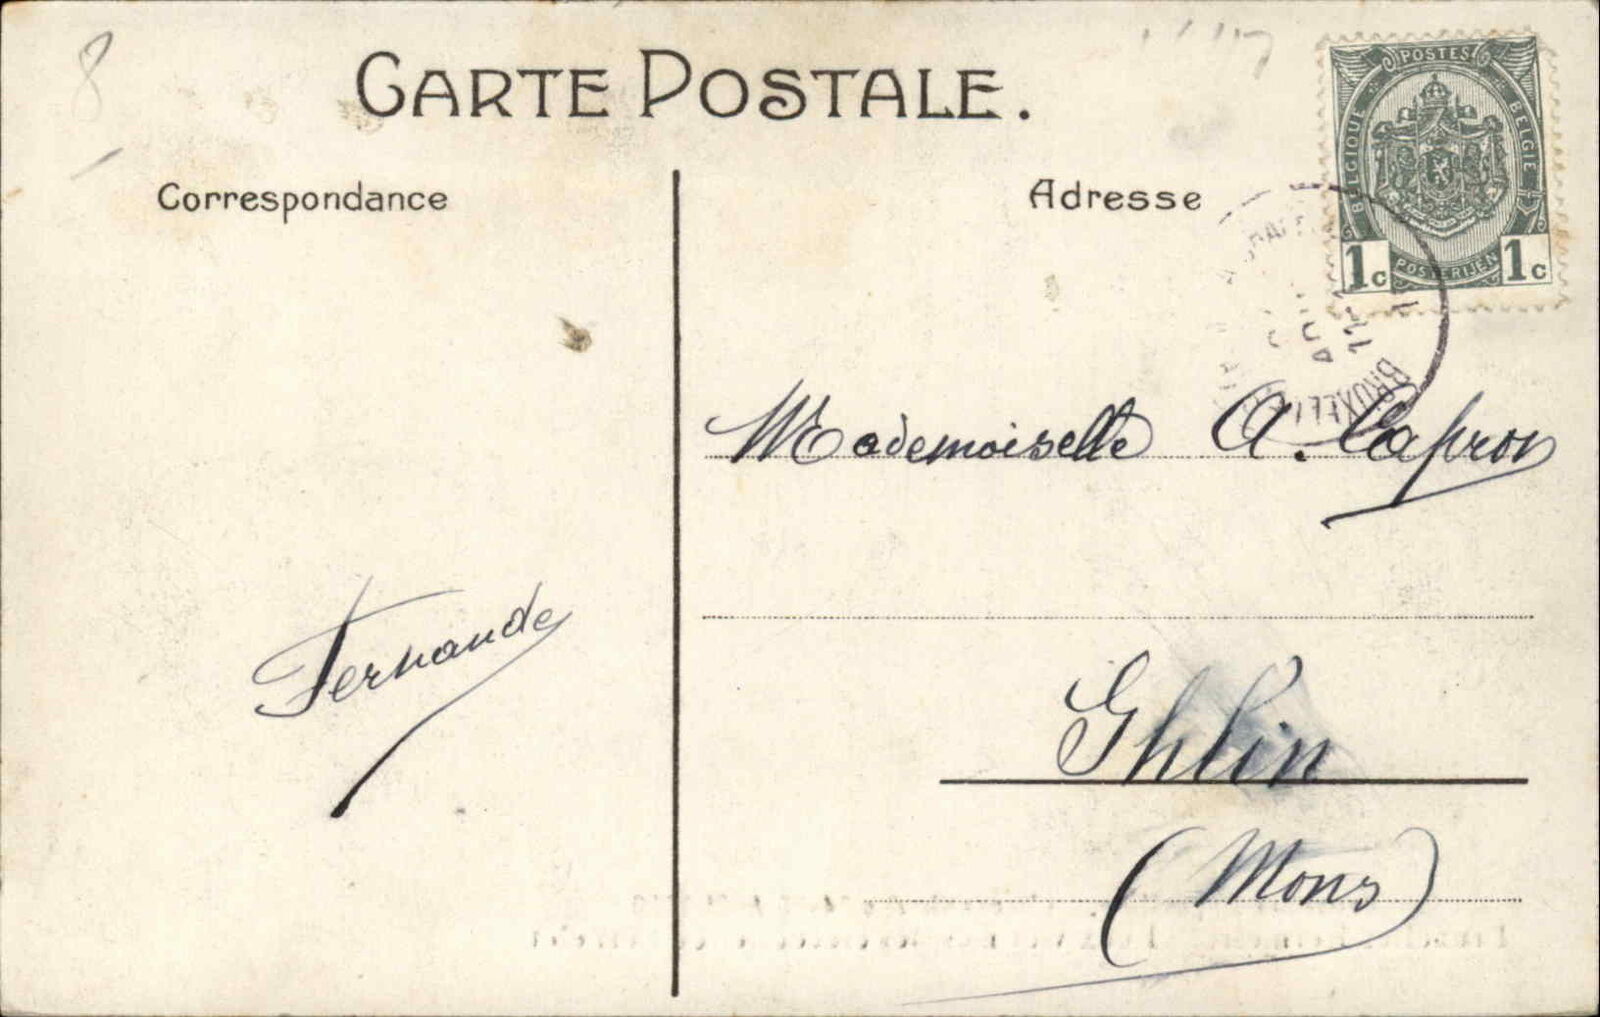 8
CARTE POSTALE.
Correspondance
Adresse
POSTES
BELGIQUE
BELGIE
1c
POSTERIJEN
1c
11-
BRUXELLES
Mademoiselle A. Capron
Fernande
Ghlin
(Mons)